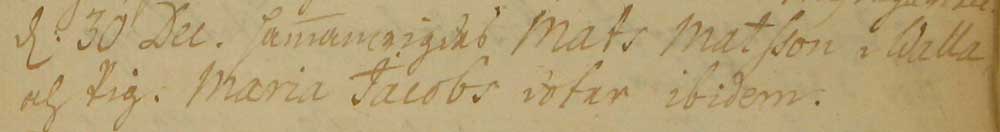 d. 30 Dec. sammanvigdes Mats Matsson i Walla
och Pig. Maria Jacobs dotter ibidem.